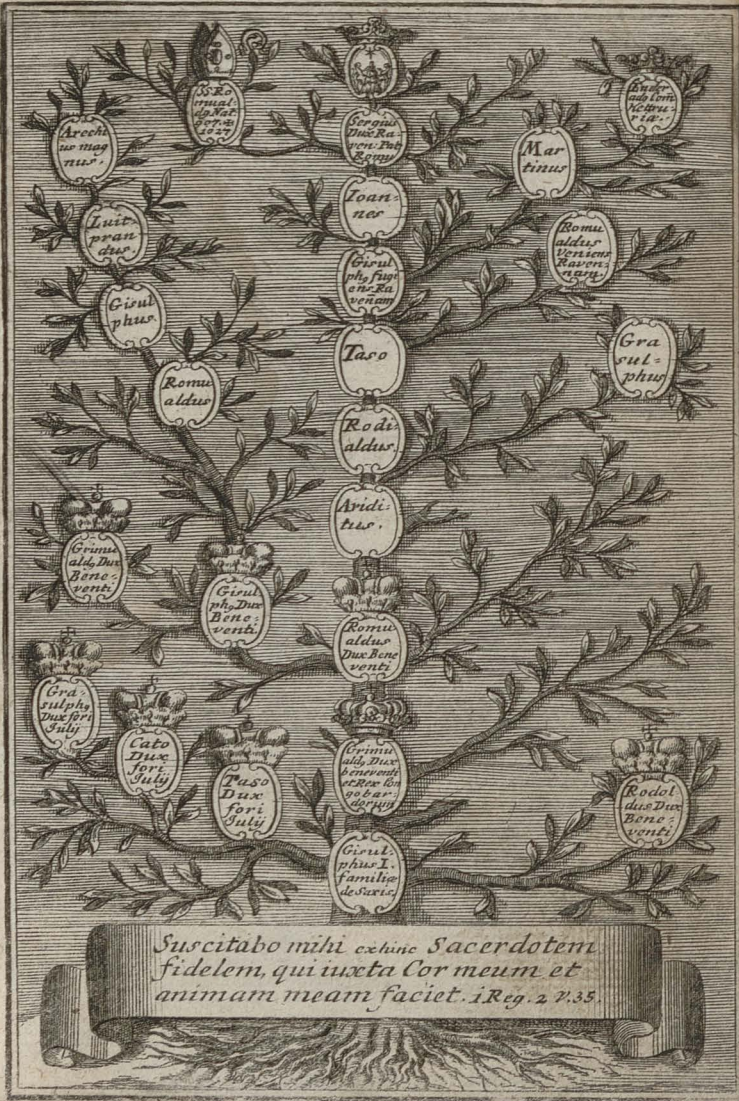 SS. Ro
mual-
dꝯ Nat.
907. ✠
1027
Sergius
Dux Ra-
ven. Pat.
Romuᵢ
Arech
us mag
nus.
Mar
tinus
Luit
pran
dus
Ioan-
nes
Romu
aldus
veniens
Raven-
nam
Gisul
phꝯ fugi
ens Ra
veñam
Gisul
phus
Taso
Gra
sul-
phus
Romu
aldus
Rodi-
aldus
Aridi-
tus.
Grimu
aldꝯ Dux
Bene-
venti
Gisul
phꝯ Dux
Bene-
venti
Romu
aldus
Dux Bene
venti
Gra-
sulphꝯ
Dux fori
Iulij
Cato
Dux
fori
Iulij
Taso
Dux
fori
Iulij
Grimu
aldꝯ Dux
beneventi
et Rex lon
gobar-
dorum
Rodol
dus Dux
Bene-
venti
Gisul
phus I.
familiæ
de Saxis.
Suscitabo mihi exhinc Sacerdotem
fidelem, qui iuxta Cor meum et
animam meam faciet. 1. Reg. 2 V. 35.